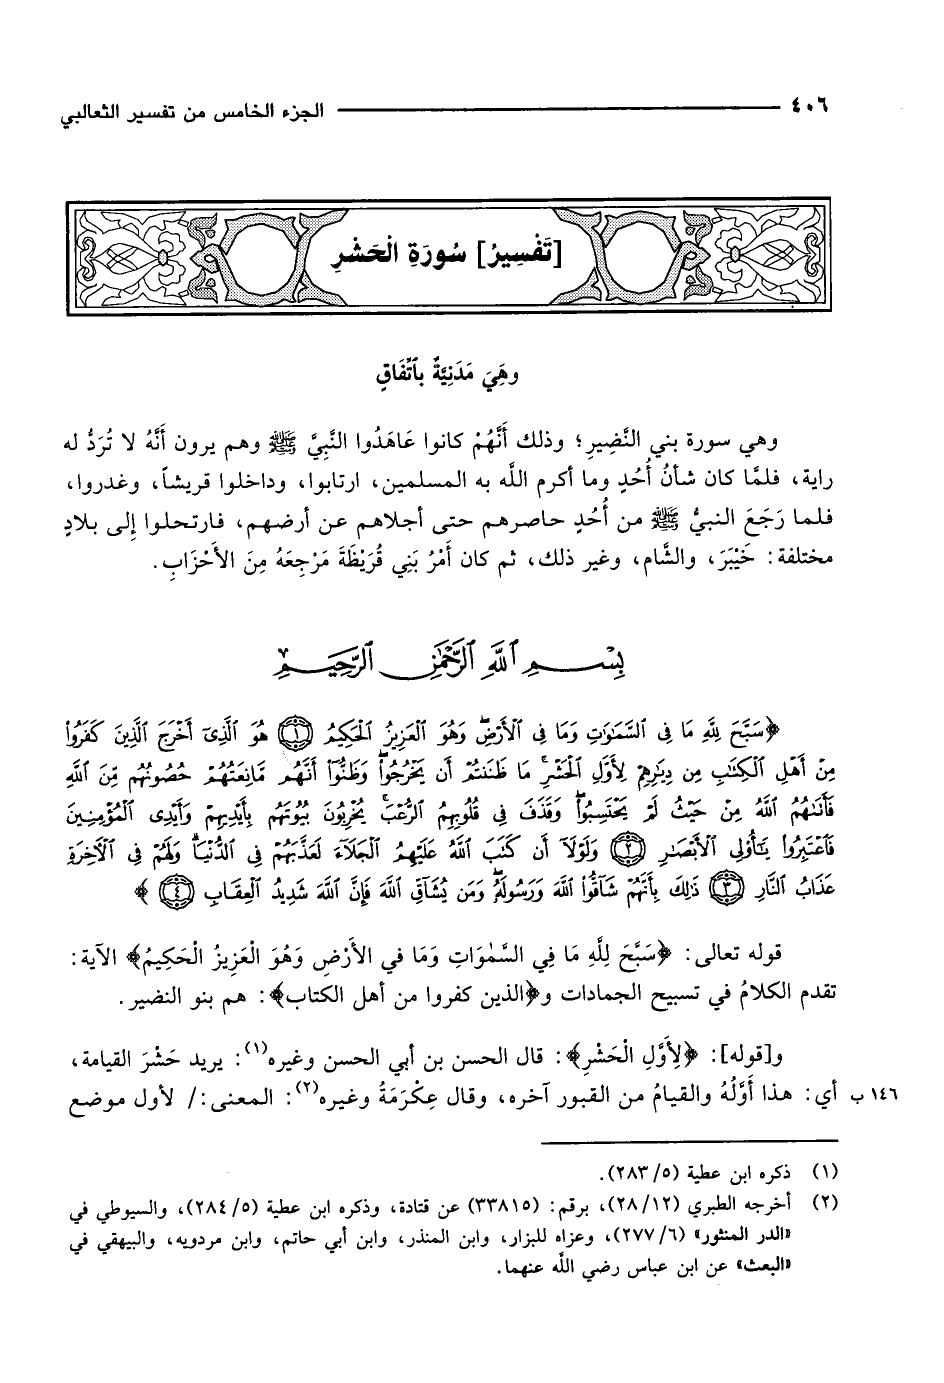 ٤٠٦ الجزء الخامس من تفسير الثعالبي
[تَفْسِيرُ] سُورَةِ الْحَشْرِ
وهِيَ مَدَنِيَّةٌ بِٱتِّفَاقٍ
وهي سورة بني النَّضِيرِ؛ وذلك أَنَّهُمْ كانوا عَاهَدُوا النَّبِيَّ ﷺ وهم يرون أَنَّهُ لا تُرَدُّ له
راية، فلمَّا كان شأنُ أُحُدٍ وما أكرم اللَّه به المسلمين، ارتابوا، وداخلوا قريشاً، وغدروا،
فلما رَجَعَ النبيُّ ﷺ من أُحُدٍ حاصرهم حتى أجلاهم عن أرضهم، فارتحلوا إلى بلادٍ
مختلفة: خَيْبَرَ، والشَّام، وغير ذلك، ثم كان أَمْرُ بَنِي قُرَيْظَةَ مَرْجِعَهُ مِنَ الأَحْزَابِ.
بِسْمِ ٱللَّهِ ٱلرَّحْمَٰنِ ٱلرَّحِيمِ
﴿سَبَّحَ لِلَّهِ مَا فِى ٱلسَّمَٰوَٰتِ وَمَا فِى ٱلْأَرْضِۖ وَهُوَ ٱلْعَزِيزُ ٱلْحَكِيمُ ۝١ هُوَ ٱلَّذِىٓ أَخْرَجَ ٱلَّذِينَ كَفَرُوا۟
مِنْ أَهْلِ ٱلْكِتَٰبِ مِن دِيَٰرِهِمْ لِأَوَّلِ ٱلْحَشْرِۚ مَا ظَنَنتُمْ أَن يَخْرُجُوا۟ۖ وَظَنُّوٓا۟ أَنَّهُم مَّانِعَتُهُمْ حُصُونُهُم مِّنَ ٱللَّهِ
فَأَتَىٰهُمُ ٱللَّهُ مِنْ حَيْثُ لَمْ يَحْتَسِبُوا۟ۖ وَقَذَفَ فِى قُلُوبِهِمُ ٱلرُّعْبَۚ يُخْرِبُونَ بُيُوتَهُم بِأَيْدِيهِمْ وَأَيْدِى ٱلْمُؤْمِنِينَ
فَٱعْتَبِرُوا۟ يَٰٓأُو۟لِى ٱلْأَبْصَٰرِ ۝٢ وَلَوْلَآ أَن كَتَبَ ٱللَّهُ عَلَيْهِمُ ٱلْجَلَآءَ لَعَذَّبَهُمْ فِى ٱلدُّنْيَاۖ وَلَهُمْ فِى ٱلْءَاخِرَةِ
عَذَابُ ٱلنَّارِ ۝٣ ذَٰلِكَ بِأَنَّهُمْ شَآقُّوا۟ ٱللَّهَ وَرَسُولَهُۥۖ وَمَن يُشَآقِّ ٱللَّهَ فَإِنَّ ٱللَّهَ شَدِيدُ ٱلْعِقَابِ ۝٤﴾
قوله تعالى: ﴿سَبَّحَ لِلَّهِ مَا فِي السَّمٰوَاتِ وَمَا في الأَرْضِ وَهُوَ الْعَزِيزُ الْحَكِيمُ﴾ الآية:
تقدم الكلامُ في تسبيح الجمادات و﴿الذين كفروا من أهل الكتاب﴾: هم بنو النضير.
و[قوله]: ﴿لأَوَّلِ الْحَشْرِ﴾: قال الحسن بن أبي الحسن وغيره(١): يريد حَشْرَ القيامة،
١٤٦ ب أي: هذا أَوَّلُهُ والقيامُ من القبور آخره، وقال عِكْرَمَةُ وغيره(٢): المعنى:/ لأول موضع
(١) ذكره ابن عطية (٥/ ٢٨٣).
(٢) أخرجه الطبري (١٢/ ٢٨)، برقم: (٣٣٨١٥) عن قتادة، وذكره ابن عطية (٥/ ٢٨٤)، والسيوطي في
«الدر المنثور» (٦/ ٢٧٧)، وعزاه للبزار، وابن المنذر، وابن أبي حاتم، وابن مردويه، والبيهقي في
«البعث» عن ابن عباس رضي اللَّه عنهما.